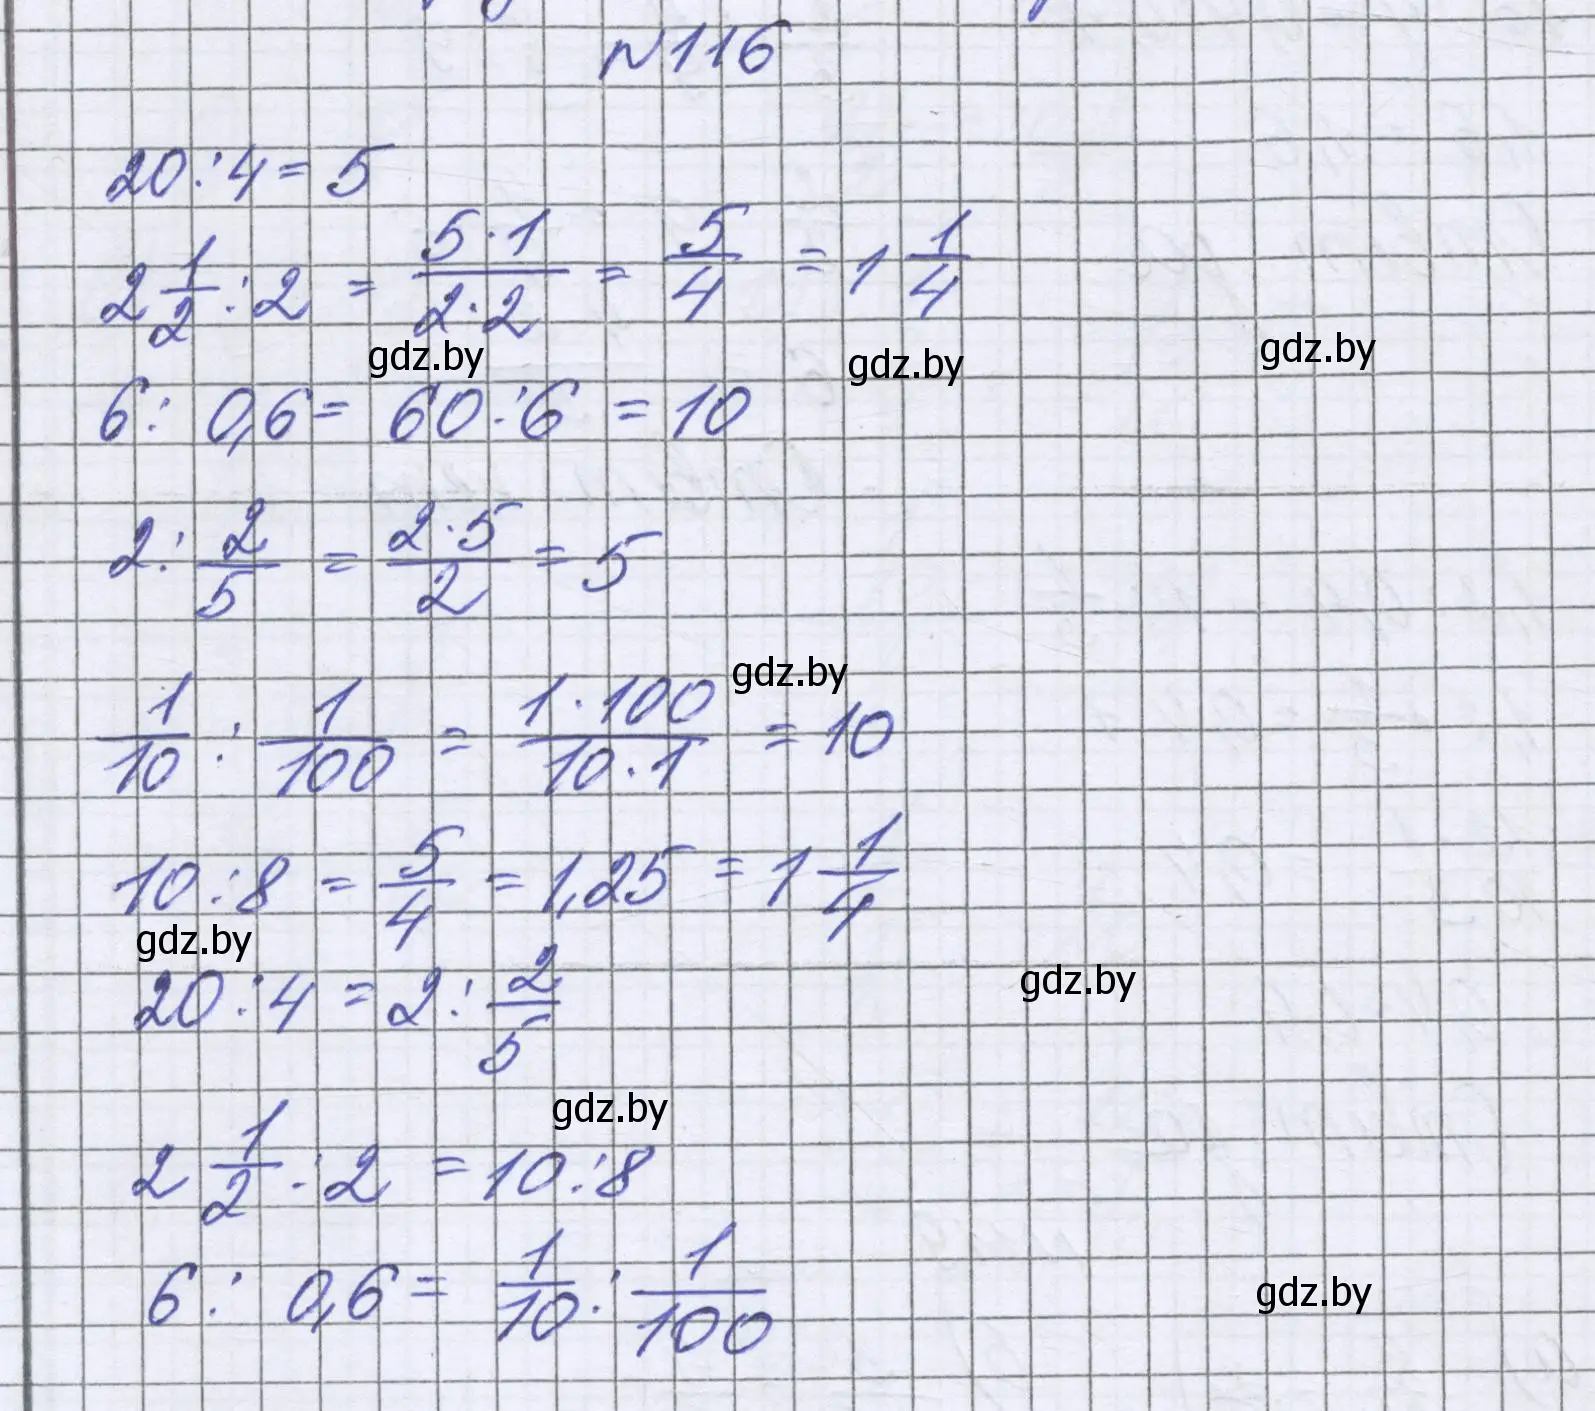 №116
20:4=5
2 1/2 : 2 = 5·1/2·2 = 5/4 = 1 1/4
gdz.by gdz.by gdz.by
6: 0,6= 60:6 =10
2: 2/5 = 2·5/2 = 5
gdz.by
1/10 : 1/100 = 1·100/10·1 = 10
10:8 = 5/4 = 1,25 = 1 1/4
gdz.by
20:4 = 2: 2/5
gdz.by
gdz.by
2 1/2 : 2 = 10:8
6: 0,6 = 1/10 : 1/100
gdz.by